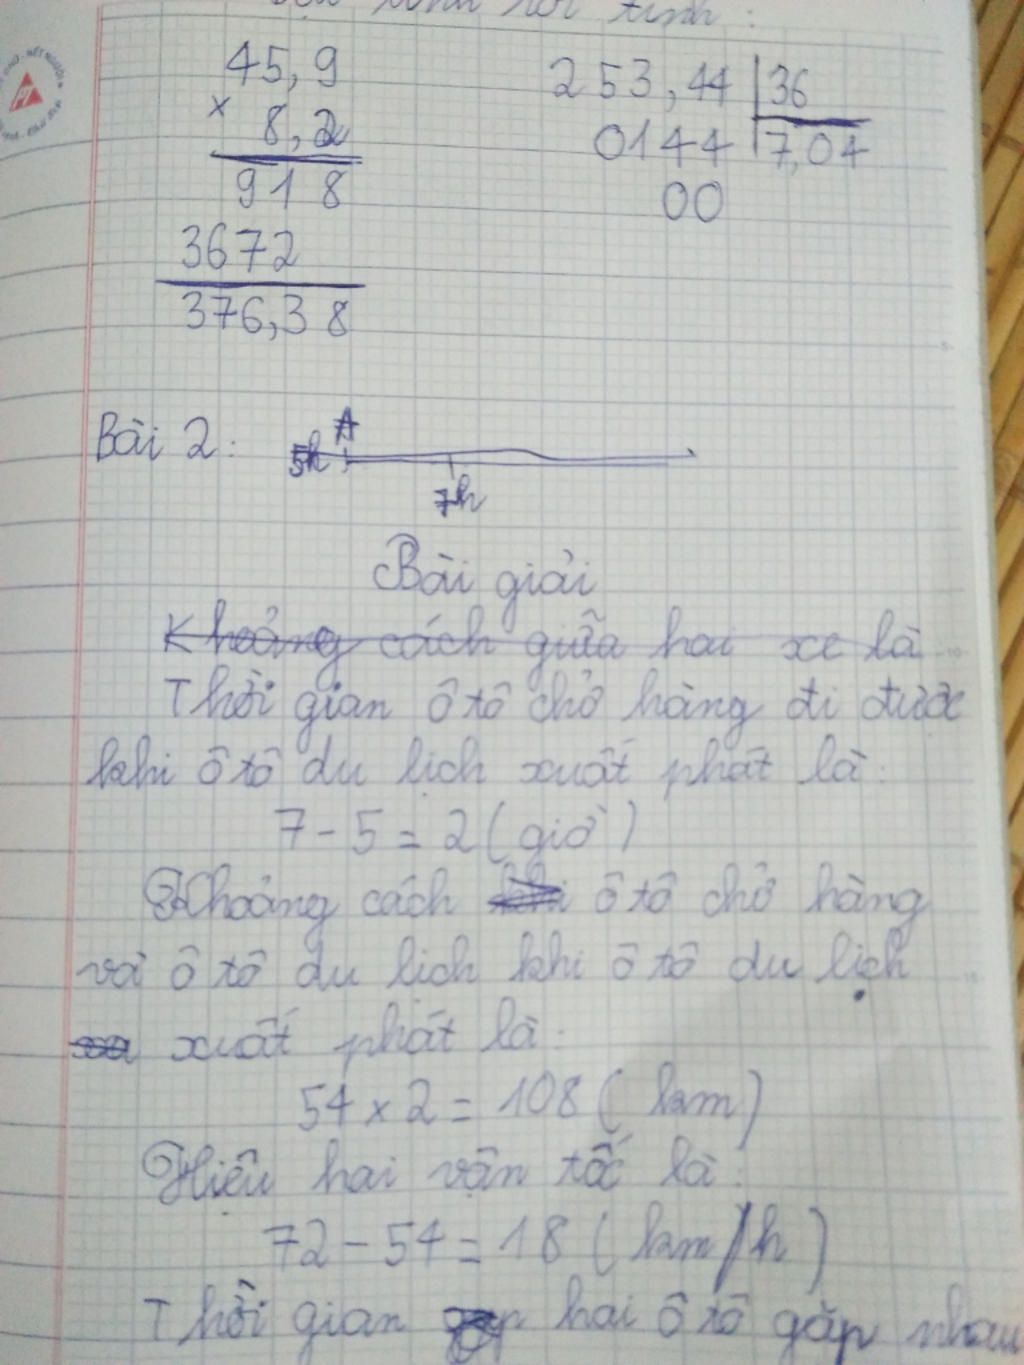 tính rồi tính:
45,9
×
8,2
918
3672
376,38
253,44 36
0144 7,04
00
Bài 2:
A
5h
7h
Bài giải
Khoảng cách giữa hai xe là
Thời gian ô tô chở hàng đi được
khi ô tô du lịch xuất phát là:
7 - 5 = 2 (giờ)
Khoảng cách ô tô chở hàng
và ô tô du lịch khi ô tô du lịch
xuất phát là:
54 × 2 = 108 (km)
Hiệu hai vận tốc là:
72 - 54 = 18 (km/h)
Thời gian hai ô tô gặp nhau